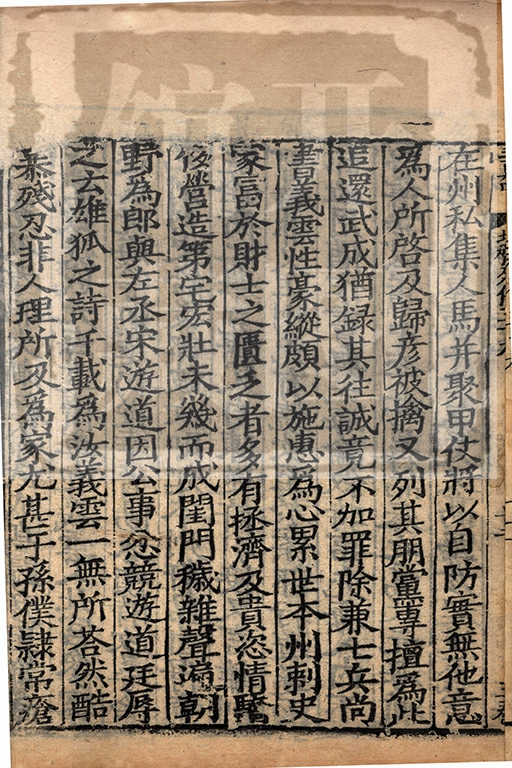 在州私集人馬并聚甲仗將以自防實無他意
為人所啓及歸彥被擒又列其朋黨專擅為此
追還武成猶録其往誠竟不加罪除兼七兵尚
書義雲性豪縱頗以施惠為心累世本州刺史
家富於財士之匱乏者多有拯濟及貴恣情驕
侈營造第宅宏壯未幾而成閨門穢雜聲遍朝
野為郎與左丞宋遊道因公事忿競遊道廷辱
之云雄狐之詩千載為汝義雲一無所荅然酷
㬥殘忍非人理所及為家尤甚于孫僕隸常瘡